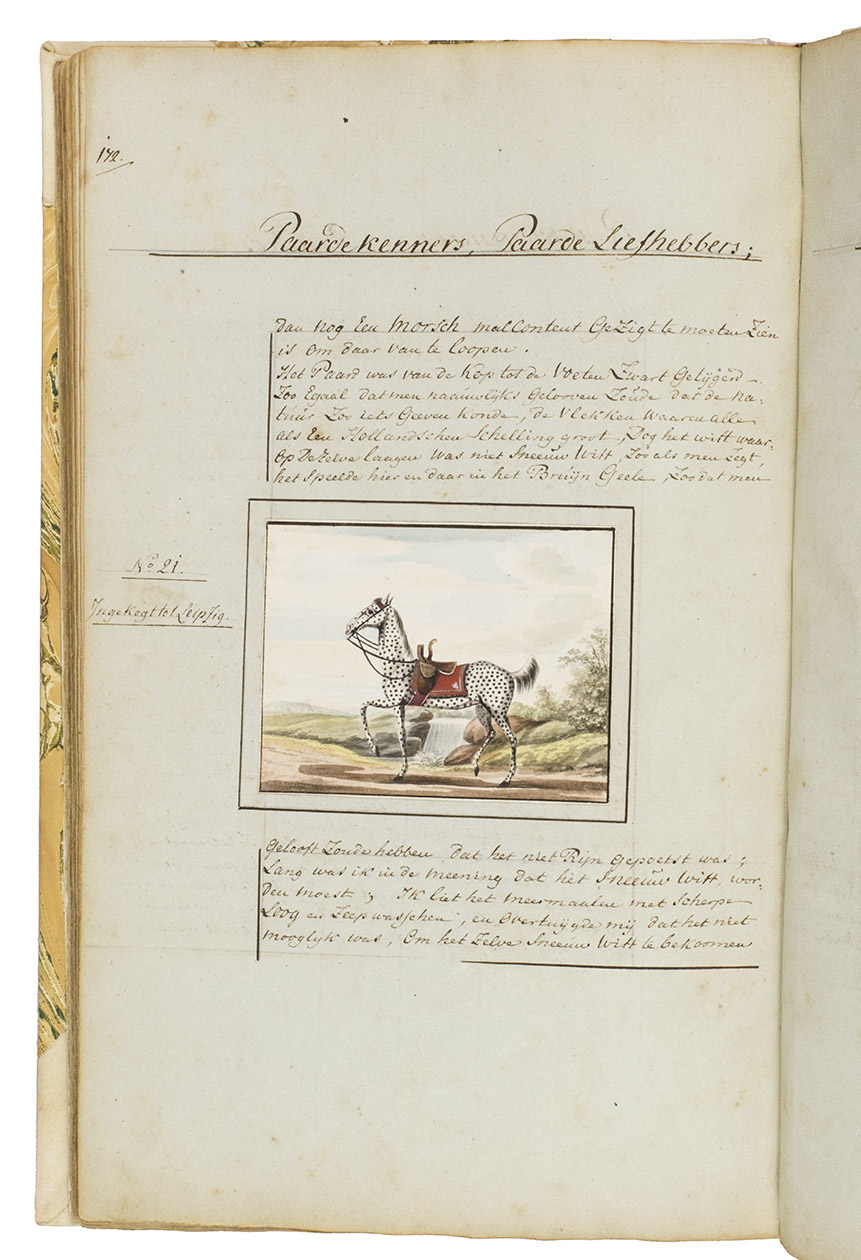 172.
Paardekenners, Paarde Liefhebbers;
dan nog Een morsch malcontent Gezigt te moeten Zien
is om daar van te loopen.
Het Paard was van de Kop tot de Voeten Zwart Getijgerd
Zoo Egaal dat men naauwlijks Gelooven Zoude dat de na-
tuur Zoo iets Geeven Konde, de Vlekken waaren alle
als Een Hollandschen Schelling groot, Dog het witt waar-
op Dezelve laagen was niet Sneeuw Witt, Zoo als men Zegt,
het Speelde hier en daar in het Bruijn Geele, Zoo dat men
No 21.
Ingekogt tot Leipzig.
Gelooft Zoude hebben, dat het niet Rijn Gepoetst was;
Lang was ik in de meening dat het Sneeuw Witt, wor-
den moest; Ik liet het meermaalen met Scherpe
Loog en Zeep wasschen, en Overtuijgde mij dat het niet
mooglyk was, Om het Zelve Sneeuw Witt te bekoomen